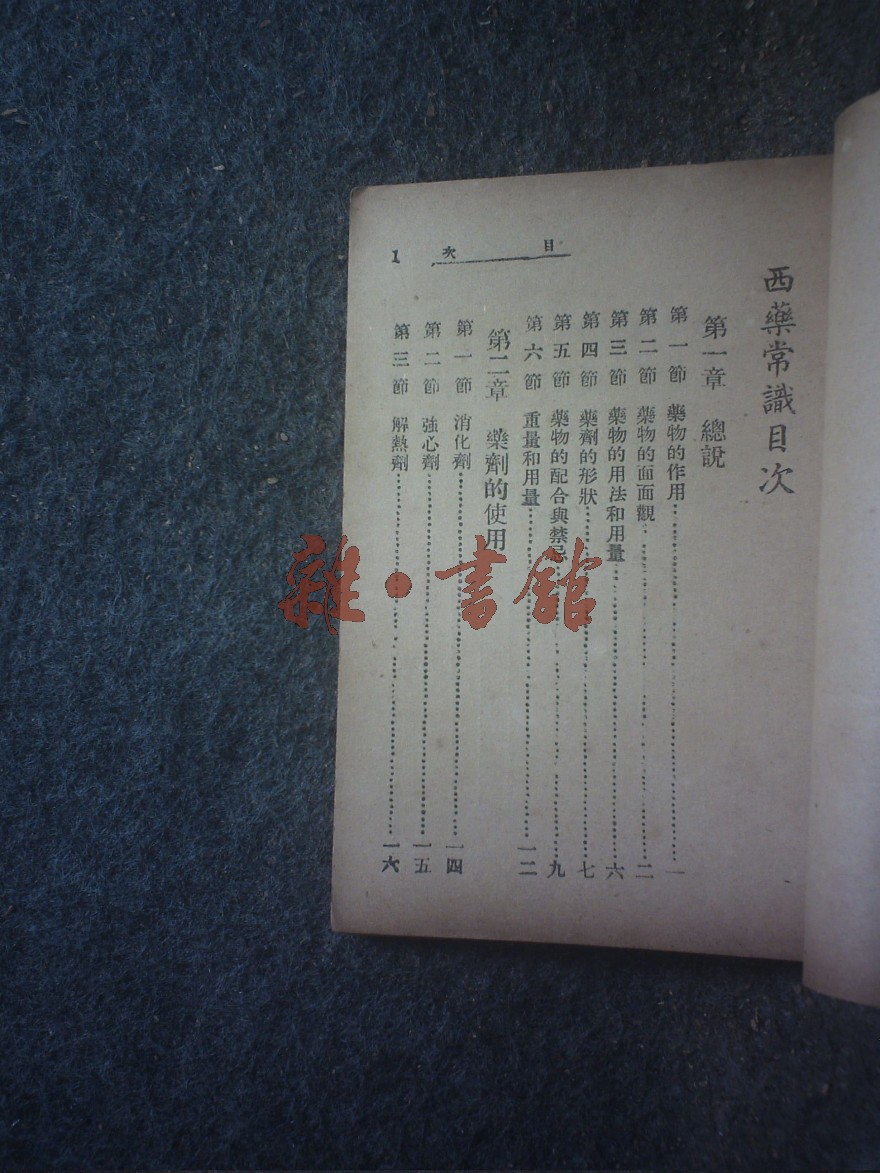 西藥常識目次
第一章 總說
第一節 藥物的作用……一
第二節 藥物的面面觀……二
第三節 藥物的用法和用量……六
第四節 藥劑的形狀……七
第五節 藥物的配合與禁忌……九
第六節 重量和用量……一二
第二章 藥劑的使用
第一節 消化劑……一四
第二節 強心劑……一五
第三節 解熱劑……一六
目次 1
雜·書館